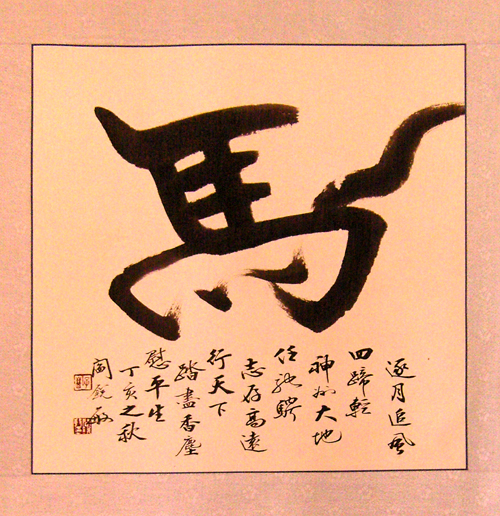 馬
逐月追風
四蹄輕
神州大地
任馳騁
志存高遠
行天下
踏盡香塵
慰平生
丁亥之秋
銳敏